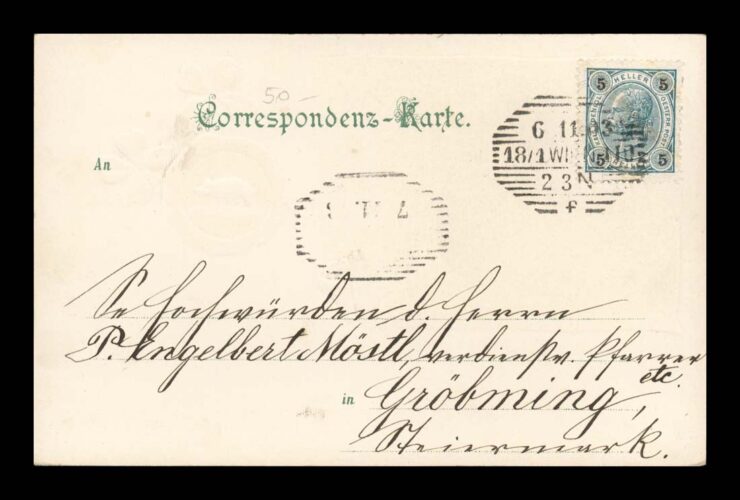 50 –
Correspondenz-Karte.
An
5 HELLER 5
5 5
6 11 03
18/1 WIEN 110
2 3 N
f
7 11 3
Se Hochwürden d. Herrn
P. Engelbert Möstl, verdienstv. Pfarrer
etc.
in Gröbming,
Steiermark.